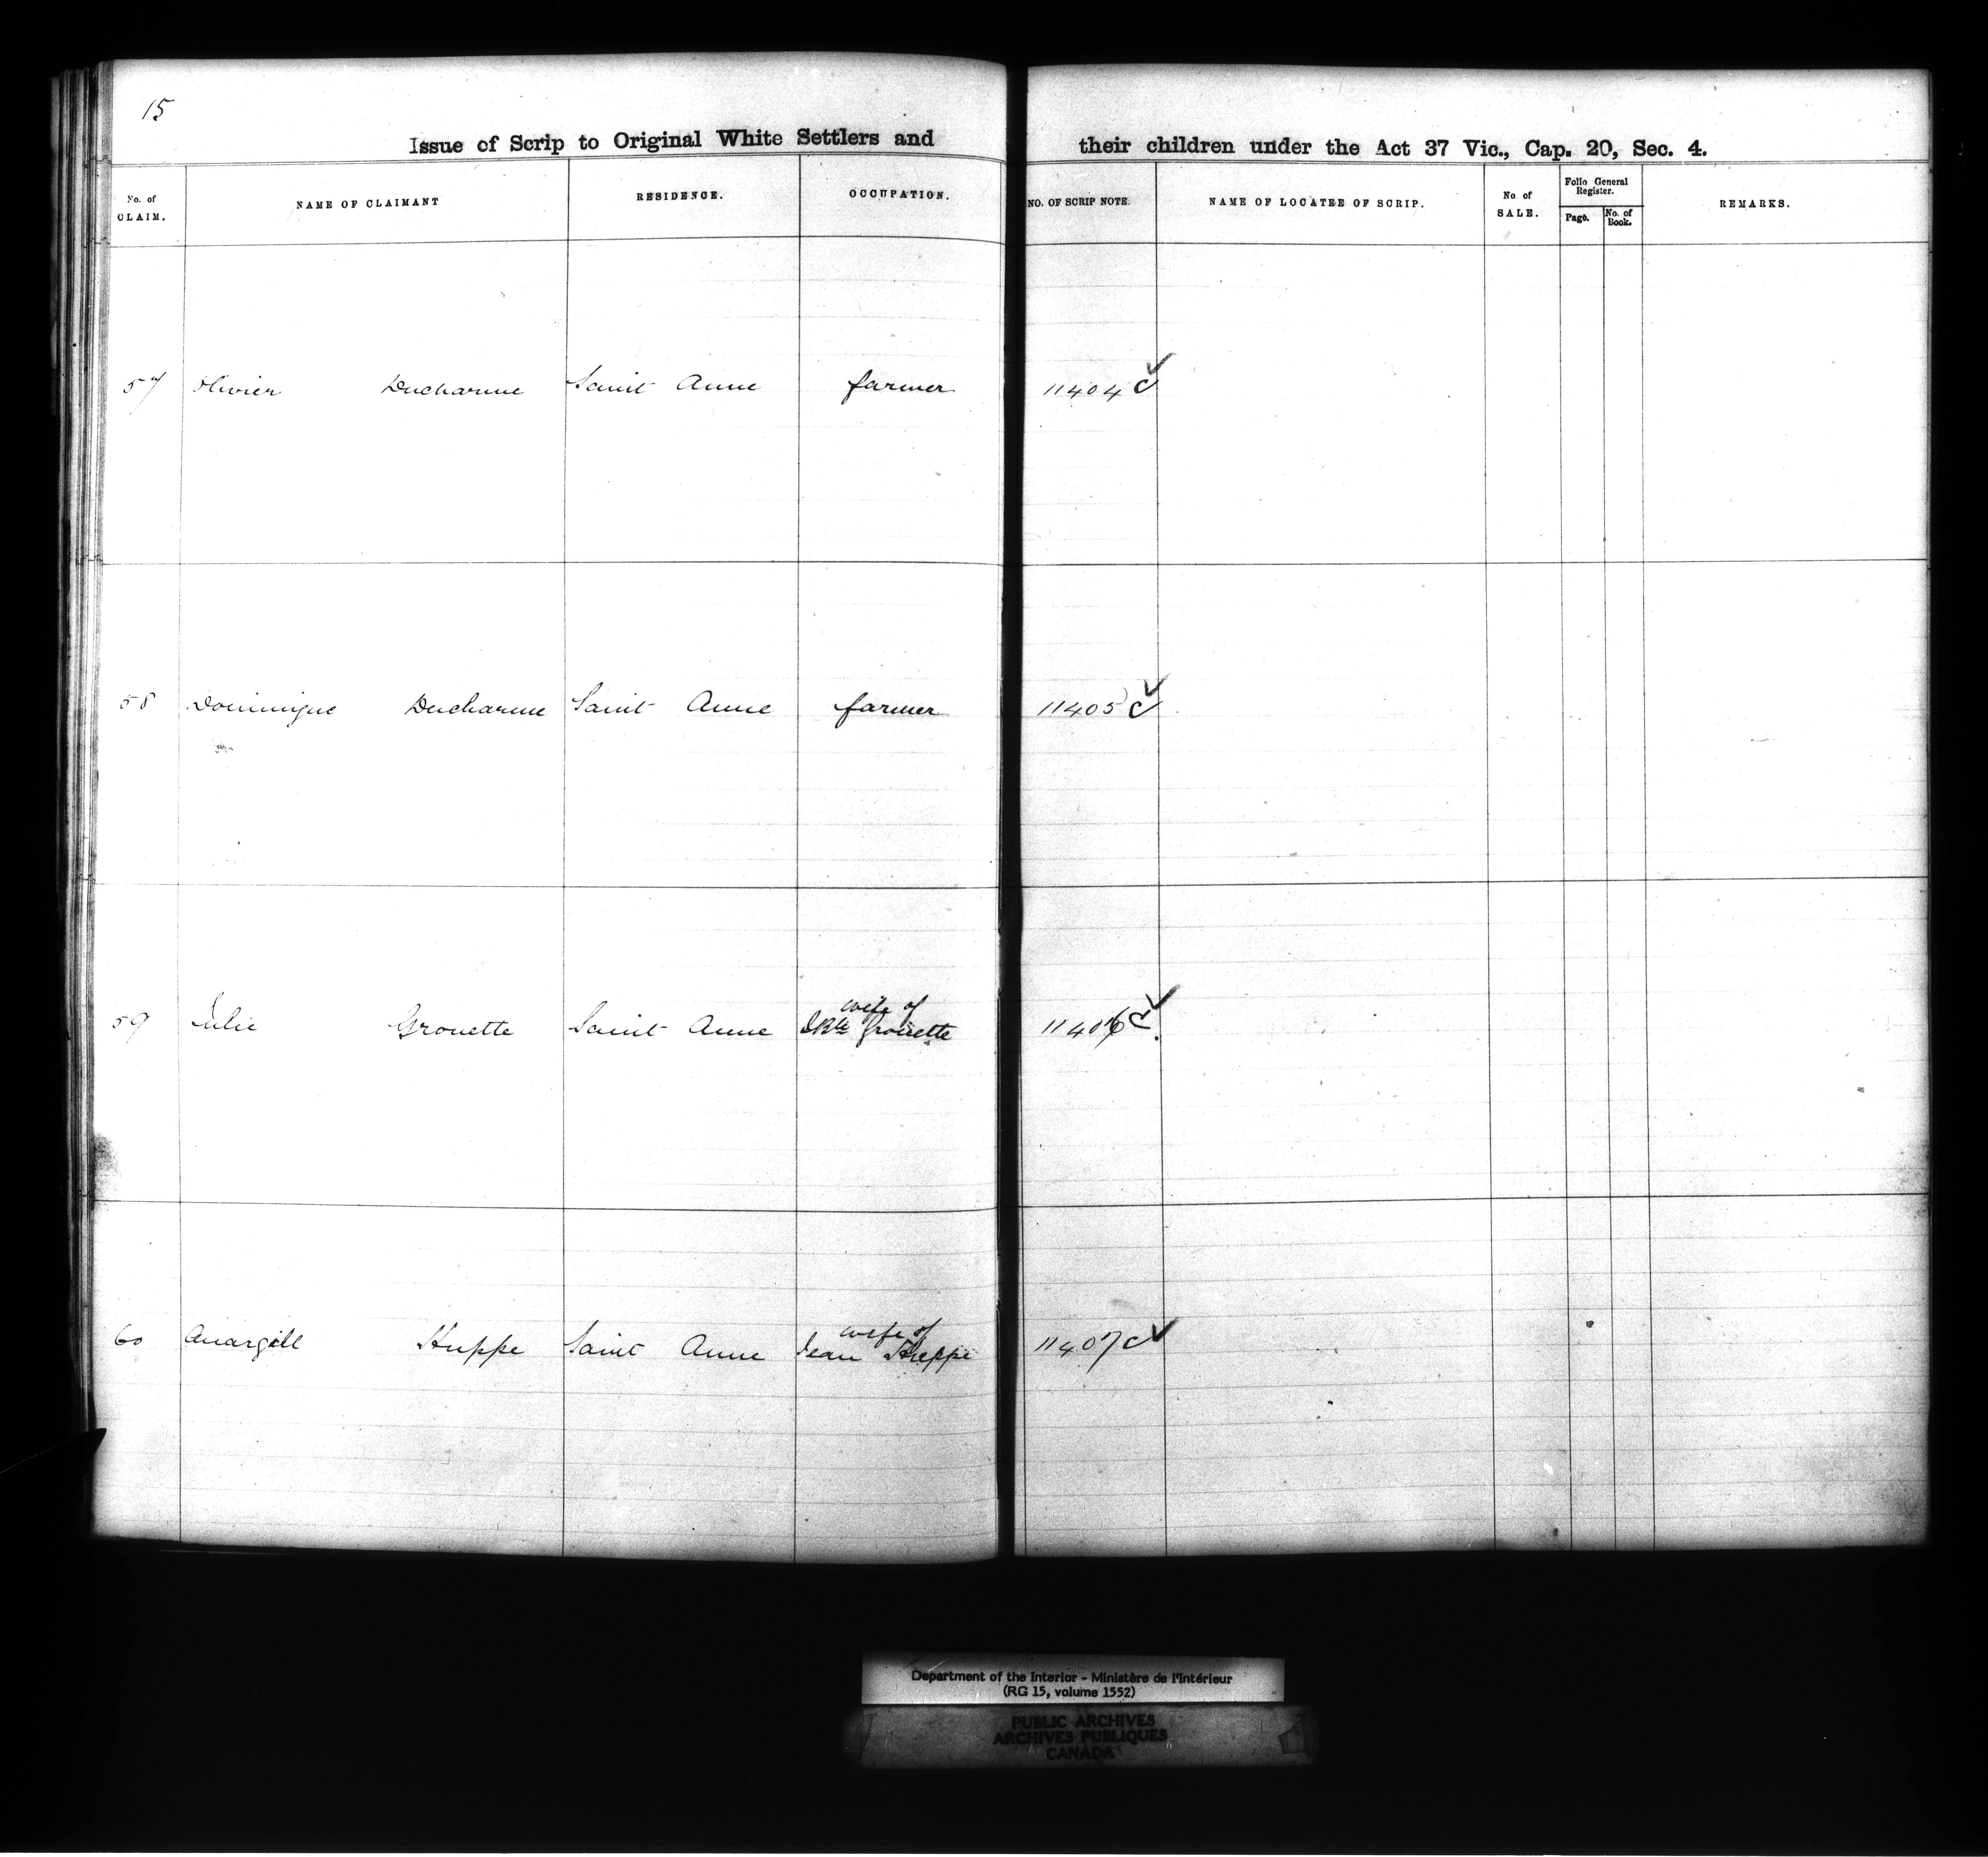 15
Issue of Scrip to Original White Settlers and their children under the Act 37 Vic., Cap. 20, Sec. 4.
No. of CLAIM. NAME OF CLAIMANT RESIDENCE. OCCUPATION. NO. OF SCRIP NOTE. NAME OF LOCATEE OF SCRIP. No of SALE. Folio General Register. Page. No. of Book. REMARKS.
57 Olivier Ducharme Saint Anne farmer 11404 C ✓
58 Dominique Ducharme Saint Anne farmer 11405 C ✓
wife of
59 Julie Grouette Saint Anne JBte Grouette 11406 C ✓
wife of
60 Anargill Huppe Saint Anne Jean Huppe 11407 C ✓
Department of the Interior - Ministère de l'Intérieur
(RG 15, volume 1552)
PUBLIC ARCHIVES
ARCHIVES PUBLIQUES
CANADA